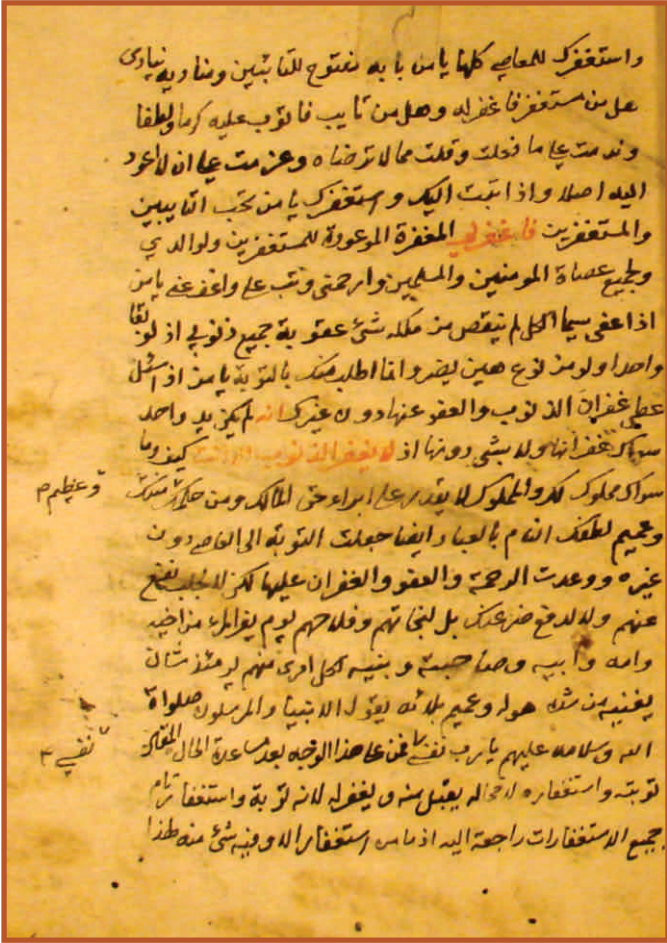 واستغفرك للمعاصي كلها يا من بابه مفتوح للتائبين ومناديه ينادى
هل من مستغفر فاغفر له وهل من تايب فاتوب عليه كرما ولطفا
وندمت على ما فعلت وقلت مما لا ترضاه وعزمت على ان لا اعود
اليه اصلا واذا تبت اليك واستغفرك يا من يحب التايبين
والمستغفرين فاغفر لي المغفرة الموعودة للمستغفرين ولوالدي
ولجميع عصاة المومنين والمسلمين وارحمنى وتب على واعف عنى يا من
اذا عفى سيما الكل لم ينقص من ملكه شئ عقوبة جميع ذنوبي اذ لو
واحدا ولو من نوع هين يضر وانا اطلب منك بالتوبة يا من اذ اسئل
غفران الذنوب والعفو عنها دون غيرك انه لم يكن يد واحد
سواك غفرانها ولا بشئ دونها اذ لا يغفر الذنوب الا انت كيف وما
سواك مملوك لك والمملوك لا يقدر على ابراء حق المالك ومن
وعظيم
وعميم لطفك التام بالعباد ايضا جعلت التوبة الى العاصى دون
غيره ووعدت الرحمة والعفو والغفران عليها لكن لا لجلب نفع
عنهم ولا لدفع ضر عنك بل لنجاتهم وفلاحهم يوم يفر المرء من اخيه
وامه وابيه وصاحبته وبنيه لكل امرئ منهم يومئذ شان
يغنيه من شدة هوله وعميم بلائه يقول الانبيا والمرسلون صلواة
الله وسلامه عليهم يا رب نفسي فمن على هذا الوجه بعد مساعدة الحال
نفسي
توبته واستغفاره لا محاله يقبل منه ويغفر له لانه توبة واستغفار تام
جميع الاستغفارات راجعة اليه اذ ما من استغفار الا وفيه شئ منه